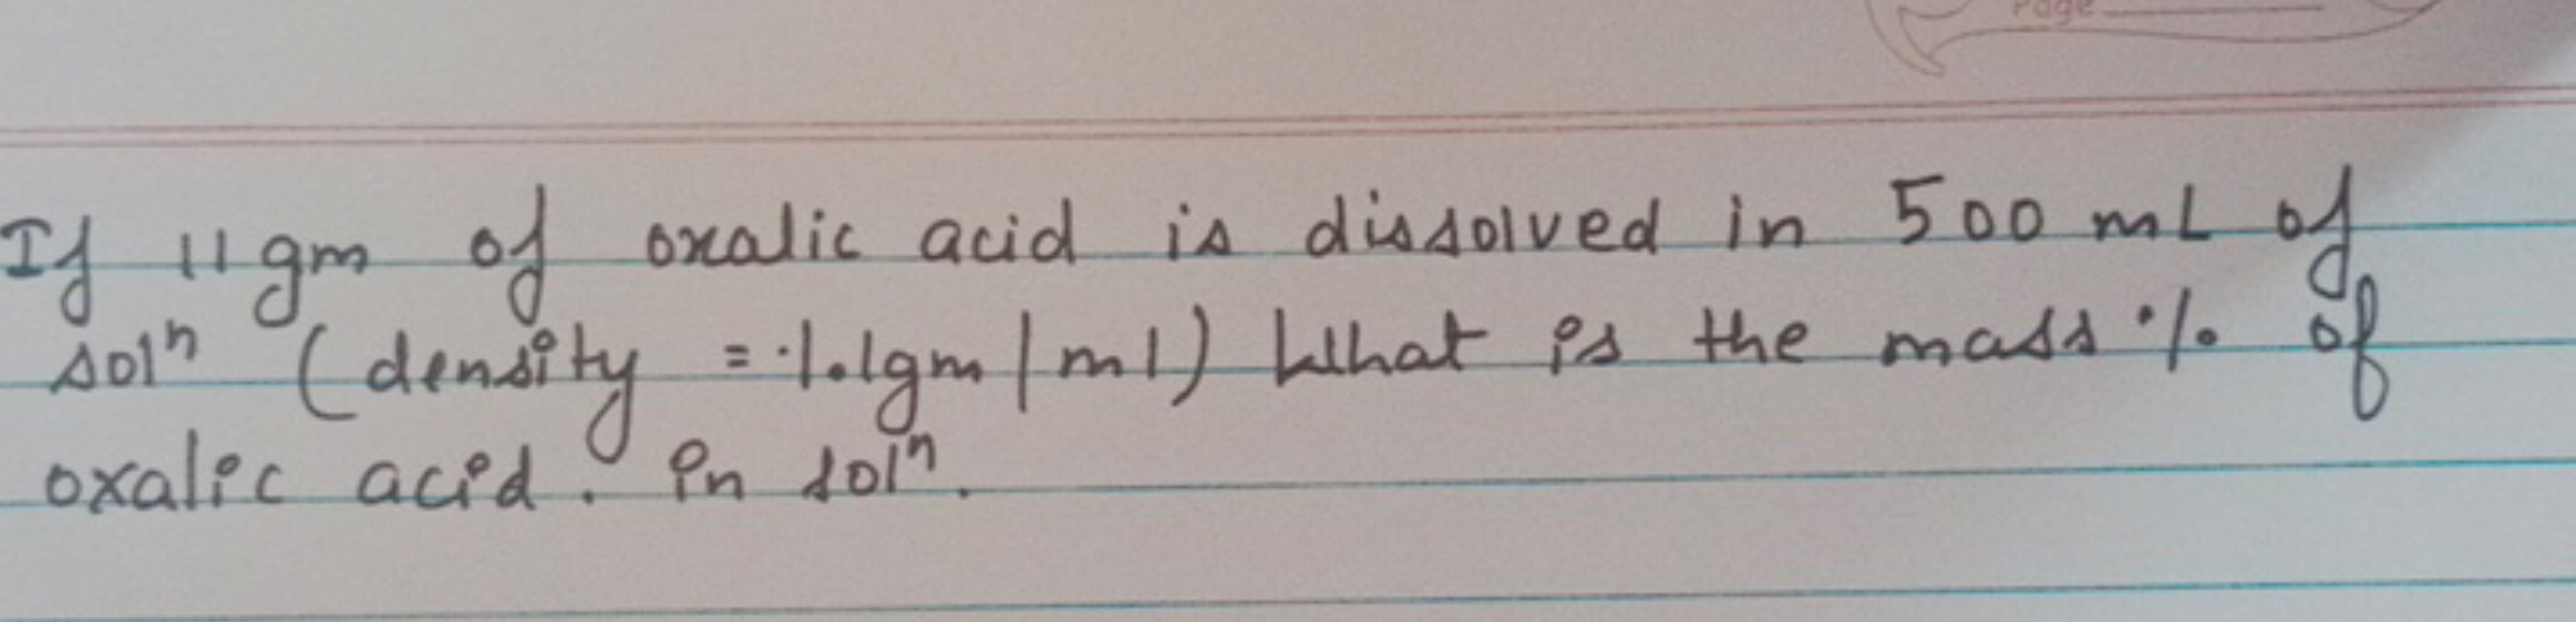 Page
If 11gm of oxalic acid is dissolved in 500 mL of
solⁿ (density = 1.1gm/ml) What is the mass % of
oxalic acid. in solⁿ.